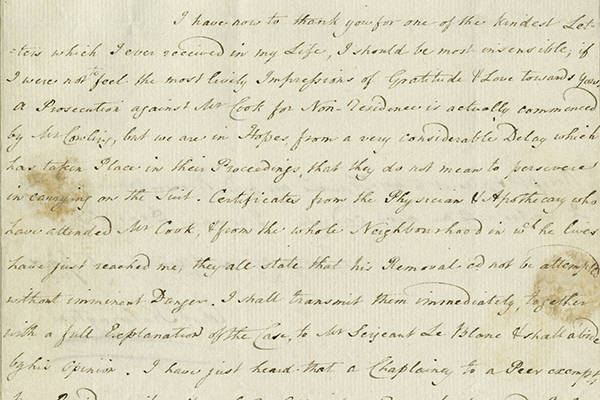 I have now to thank you for one of the kindest Let-
=ters which I ever received in my Life, I should be most insensible, if
I were not to feel the most lively Impressions of Gratitude & Love towards you,
a Prosecution against Mr Cook for Non-Residence is actually commenced
by Mr but we are in Hopes, from a very considerable Delay which
has taken Place in their Proceedings, that they do not mean to persevere
in carrying on the Suit. Certificates from the Physician & Apothecary who
have attended Mr Cook, & from the whole Neighbourhood in wh he lives
have just reached me, they all state that his Removal cd not be attempted
without imminent Danger. I shall transmit them immediately, together
with a full Explanation of the Case, to Mr Serjeant Le Blanc & shall abide
by his Opinion. I have just heard that a Chaplaincy to a Peer exempts